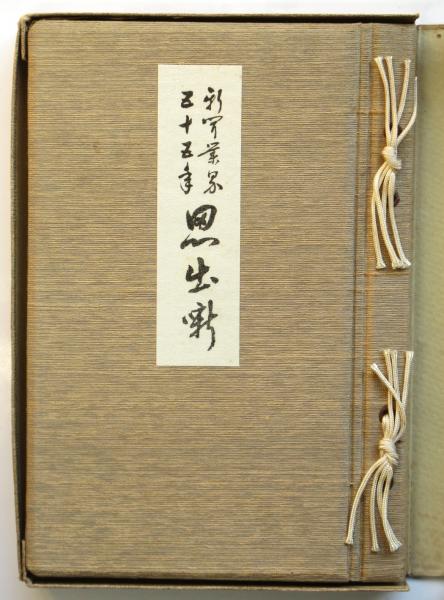 新聞業界
五十五年
思出噺